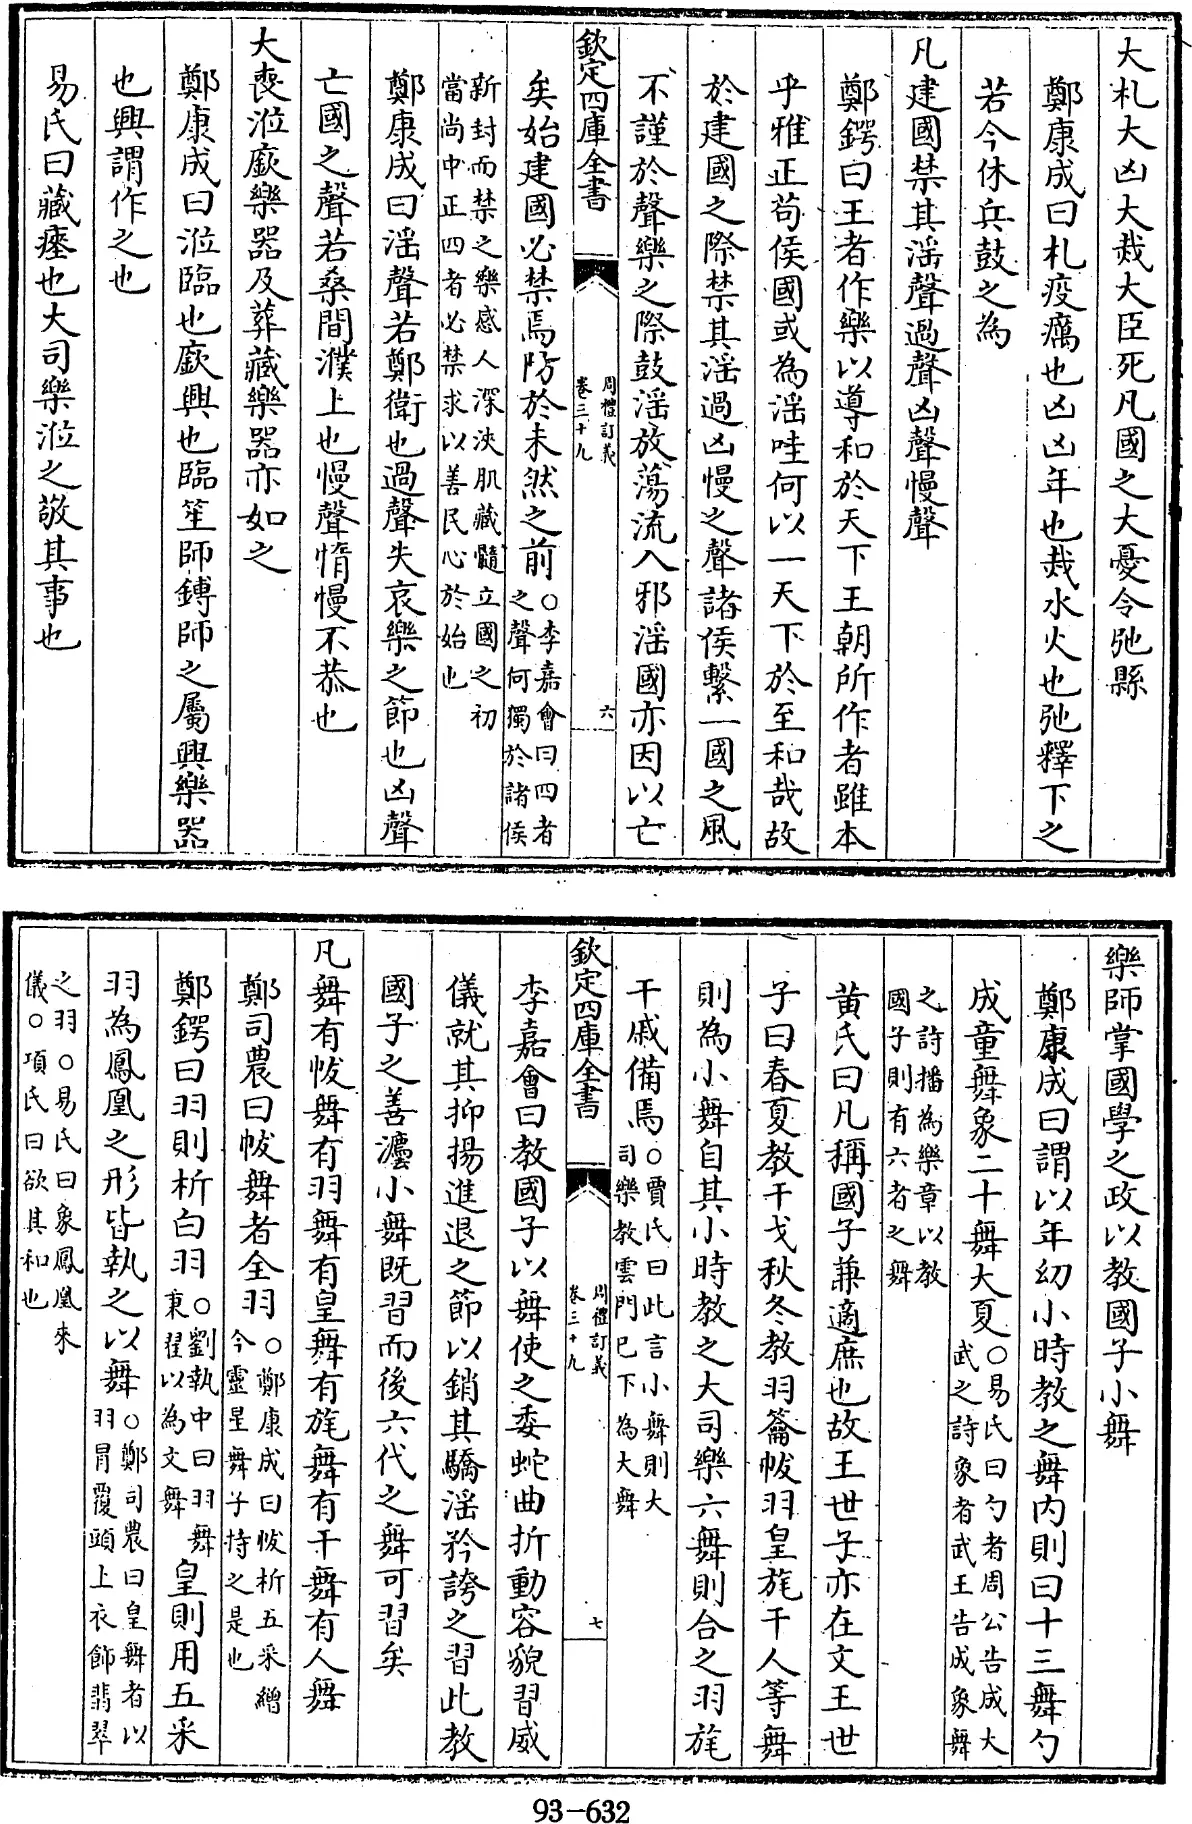 大札大凶大烖大臣死凡國之大憂令弛縣
鄭康成曰札疫癘也凶凶年也烖水火也弛釋下之
若今休兵鼓之為
凡建國禁其淫聲過聲凶聲慢聲
鄭鍔曰王者作樂以導和於天下王朝所作者雖本
乎雅正苟侯國或為淫哇何以一天下於至和哉故
於建國之際禁其淫過凶慢之聲諸侯繫一國之風
不謹於聲樂之際鼓淫放蕩流入邪淫國亦因以亡
欽定四庫全書
周禮訂義
卷三十九
六
矣始建國必禁焉防於未然之前○李嘉會曰四者
之聲何獨於諸侯
新封而禁之樂感人深浹肌藏髓立國之初
當尚中正四者必禁求以善民心於始也
鄭康成曰淫聲若鄭衛也過聲失哀樂之節也凶聲
亡國之聲若桑間濮上也慢聲惰慢不恭也
大喪涖廞樂器及葬藏樂器亦如之
鄭康成曰涖臨也廞興也臨笙師鎛師之屬興樂器
也興謂作之也
易氏曰藏瘞也大司樂涖之敬其事也
樂師掌國學之政以教國子小舞
鄭康成曰謂以年幼小時教之舞内則曰十三舞勺
成童舞象二十舞大夏○易氏曰勺者周公告成大
武之詩象者武王告成象舞
之詩播為樂章以教
國子則有六者之舞
黄氏曰凡稱國子兼適庶也故王世子亦在文王世
子曰春夏教干戈秋冬教羽籥帗羽皇旄干人等舞
則為小舞自其小時教之大司樂六舞則合之羽旄
干戚備焉○賈氏曰此言小舞則大
司樂教雲門已下為大舞
欽定四庫全書
周禮訂義
卷三十九
七
李嘉會曰教國子以舞使之委蛇曲折動容貌習威
儀就其抑揚進退之節以銷其驕淫矜誇之習此教
國子之善灋小舞既習而後六代之舞可習矣
凡舞有帗舞有羽舞有皇舞有旄舞有干舞有人舞
鄭司農曰帗舞者全羽○鄭康成曰帗析五采繒
今靈星舞子持之是也
鄭鍔曰羽則析白羽○劉執中曰羽舞
東翟以為文舞
皇則用五采
羽為鳳凰之形皆執之以舞○鄭司農曰皇舞者以
羽冒覆頭上衣飾翡翠
之羽○易氏曰象鳳凰來
儀○項氏曰欲其和也
93-632